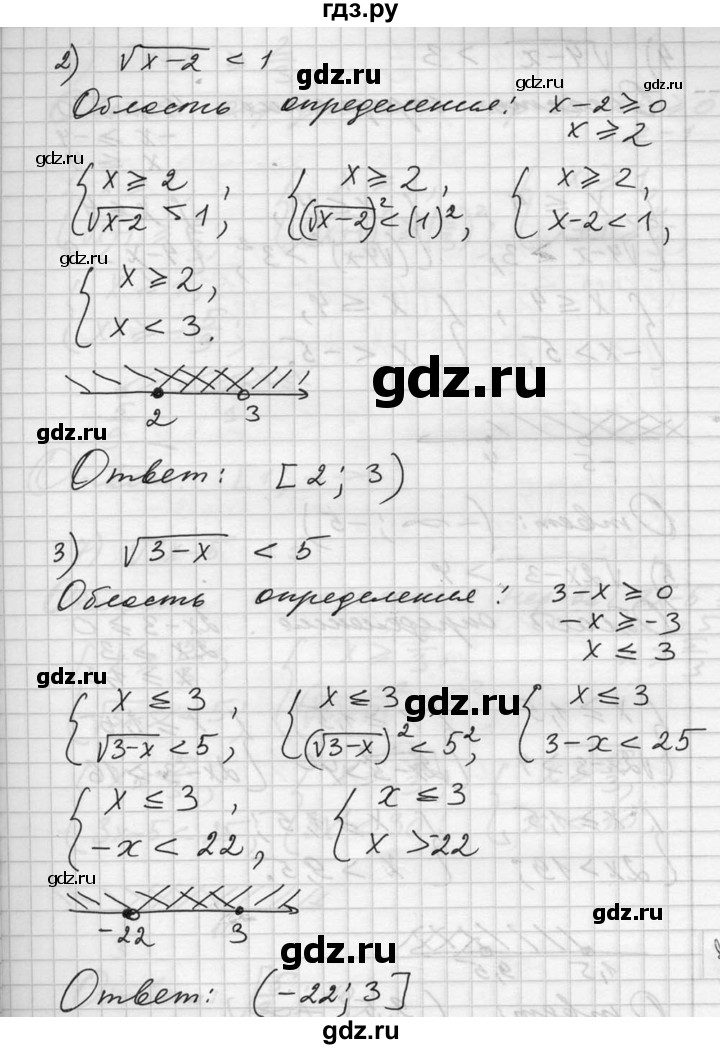 гдз.ру
2) √x-2 < 1
gdz.ru
Область определения: x-2 ⩾ 0
gdz.ru
x ⩾ 2
gdz.ru
{ x ⩾ 2, √x-2 < 1; { x ⩾ 2, (√x-2)² < (1)², { x ⩾ 2, x-2 < 1,
gdz.ru
{ x ⩾ 2, x < 3.
gdz.ru
2 3
gdz.ru
Ответ: [2; 3)
3) √3-x < 5
Область определения: 3-x ⩾ 0
gdz.ru
-x ⩾ -3
x ≤ 3
gdz.ru
{ x ≤ 3, √3-x < 5, { x ≤ 3 (√3-x)² < 5², { x ≤ 3 3-x < 25
gdz.ru
{ x ≤ 3, -x < 22, { x ≤ 3 x > -22
gdz.ru
-22 3
gdz.ru
gdz.ru
Ответ: (-22; 3]
gdz.ru